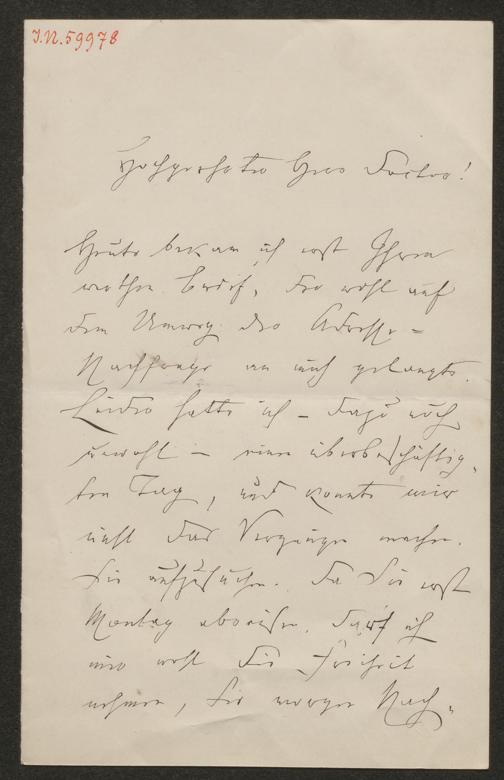 I.N. 59978
Hochgeehrter Herr Doctor!
Heute bekam ich erst Ihren
werthen Brief, der wohl auf
dem Umweg der Adresse-
Nachfrage an mich gelangte.
Leider hatte ich – dazu noch
unwohl – einen überbeschäftig-
ten Tag, und konnte mir
nicht das Vergnügen machen,
Sie aufzusuchen. Da Sie erst
Montag abreisen, darf ich
mir wohl die Freiheit
nehmen, Sie morgen Nach-